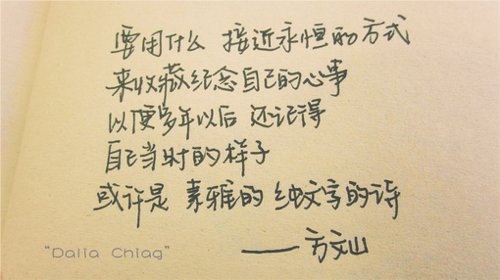 要用什么 接近永恒的方式
来收藏纪念自己的心事
以便多年以后 还记得
自己当时的样子
或许是 素雅的 纯文字的诗
——方文山
"Dalla Chlag"